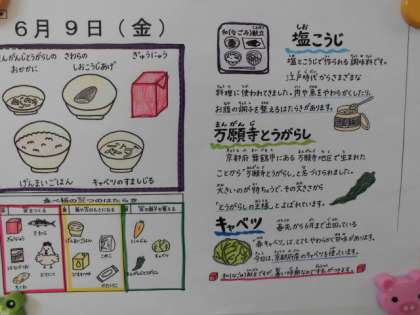 6月9日(金)
まんがんじとうがらしの
おかかに
さわらの
しおこうじあげ
ぎゅうにゅう
げんまいごはん
キャベツのすましじる
食べ物の3つのはたらき
和(なごみ)献立
しお
塩こうじ
塩とこうじで作られる調味料です。
江戸時代からさまざまな
料理に使われてきました。肉や魚をやわらかくしたり、
お腹の調子を整えるはたらきがあります。
まんがんじ
万願寺とうがらし
京都府舞鶴市にある万願寺地区で生まれた
ことから「万願寺とうがらし」と名づけられました。
大きいのが特ちょうで、その大きさから
「とうがらしの王様」とよばれています。
キャベツ
春先から6月まで出回っている
春キャベツは、とてもやわらかくて甘みがあります。
今回は、京都府産のキャベツを使います。